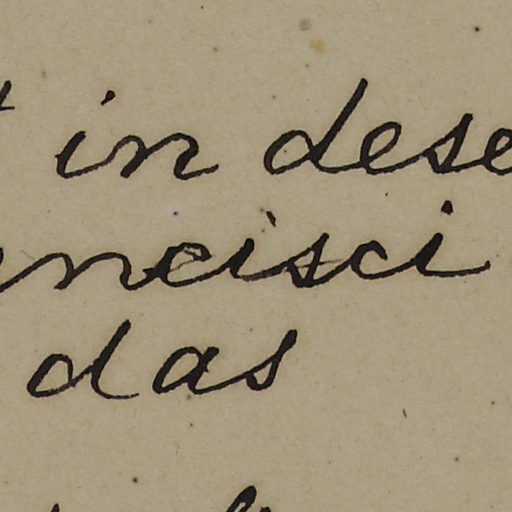 in dese
ncisci
das